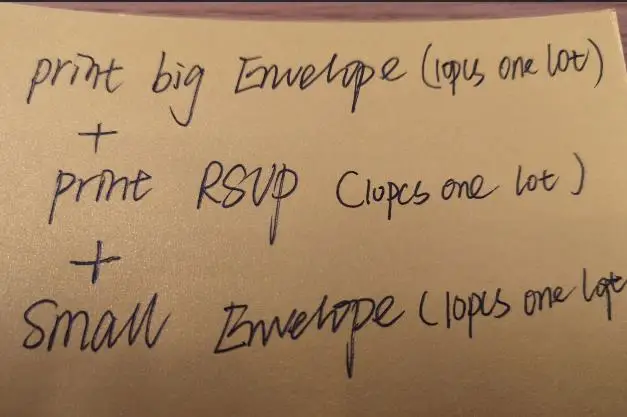 print big Envelope (10pcs one lot)
+
print RSVP (10pcs one lot)
+
Small Envelope (10pcs one lot